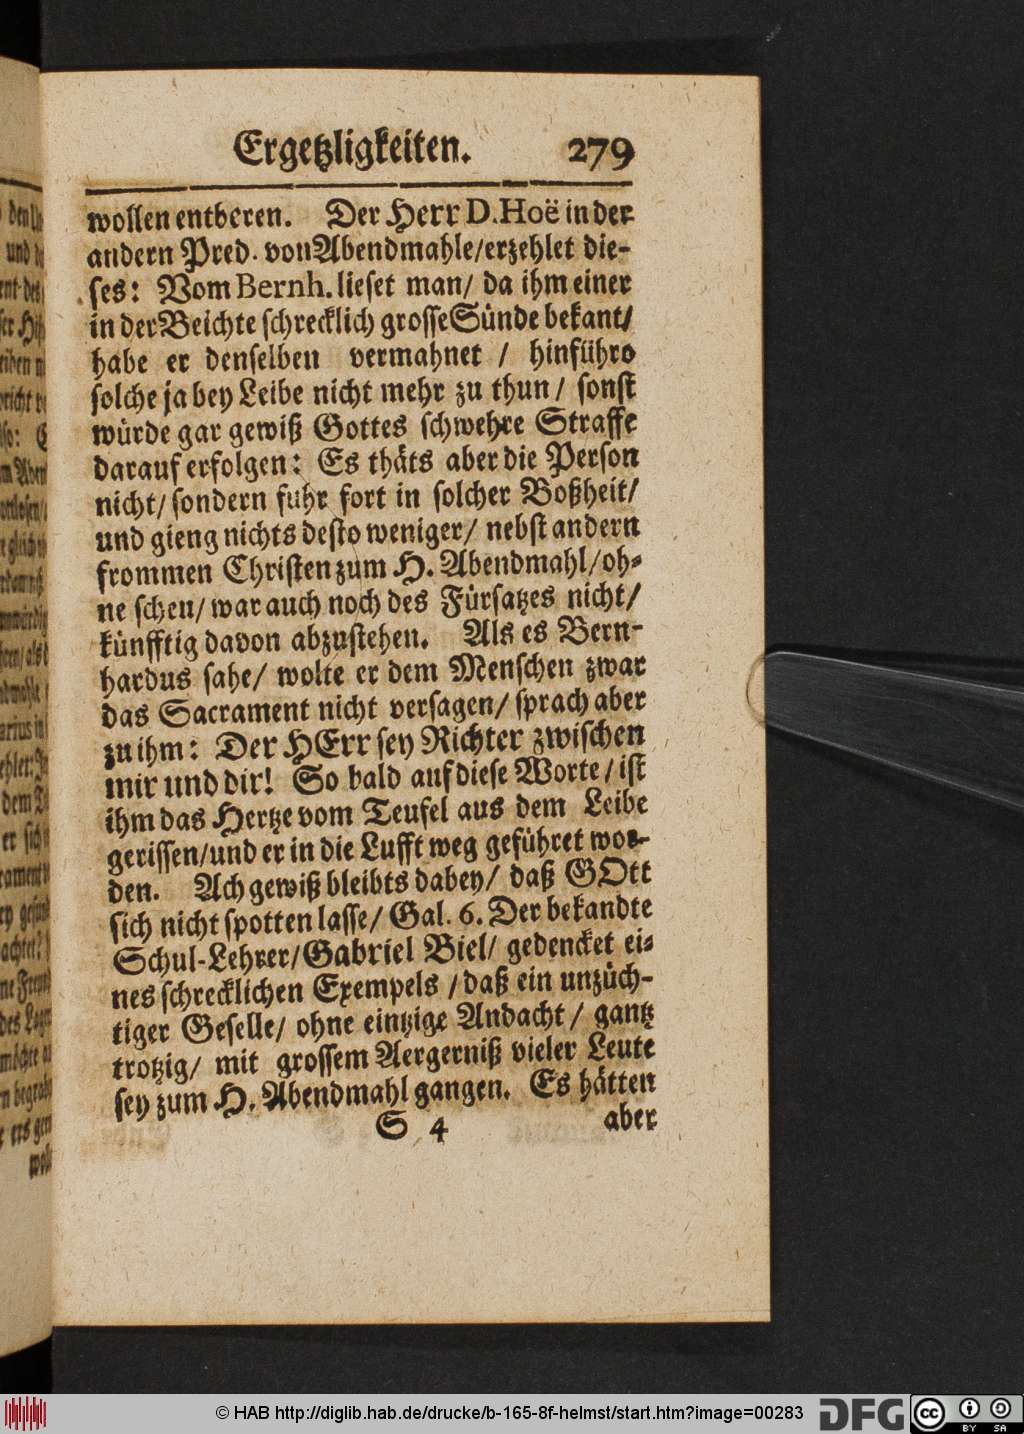 Ergetzligkeiten. 279
wollen entberen. Der Herr D. Hoë in der
andern Pred. von Abendmahle/ erzehlet die-
ses: Vom Bernh. lieset man/ da ihm einer
in der Beichte schrecklich grosse Sünde bekant/
habe er denselben vermahnet / hinführo
solche ja bey Leibe nicht mehr zu thun / sonst
würde gar gewiß Gottes schwehre Straffe
darauf erfolgen: Es thäts aber die Person
nicht/ sondern fuhr fort in solcher Boßheit/
und gieng nichts desto weniger/ nebst andern
frommen Christen zum H. Abendmahl/ oh-
ne scheu/ war auch noch des Fürsatzes nicht/
künfftig davon abzustehen. Als es Bern-
hardus sahe/ wolte er dem Menschen zwar
das Sacrament nicht versagen/ sprach aber
zu ihm: Der HErr sey Richter zwischen
mir und dir! So bald auf diese Worte / ist
ihm das Hertze vom Teufel aus dem Leibe
gerissen/ und er in die Lufft weg geführet wor-
den. Ach gewiß bleibts dabey/ daß GOtt
sich nicht spotten lasse/ Gal. 6. Der bekandte
Schul-Lehrer/ Gabriel Biel/ gedencket ei-
nes schrecklichen Exempels / daß ein unzüch-
tiger Geselle/ ohne eintzige Andacht / gantz
trotzig/ mit grossem Aergerniß vieler Leute
sey zum H. Abendmahl gangen. Es hätten
S 4 aber
© HAB http://diglib.hab.de/drucke/b-165-8f-helmst/start.htm?image=00283 DFG cc BY SA